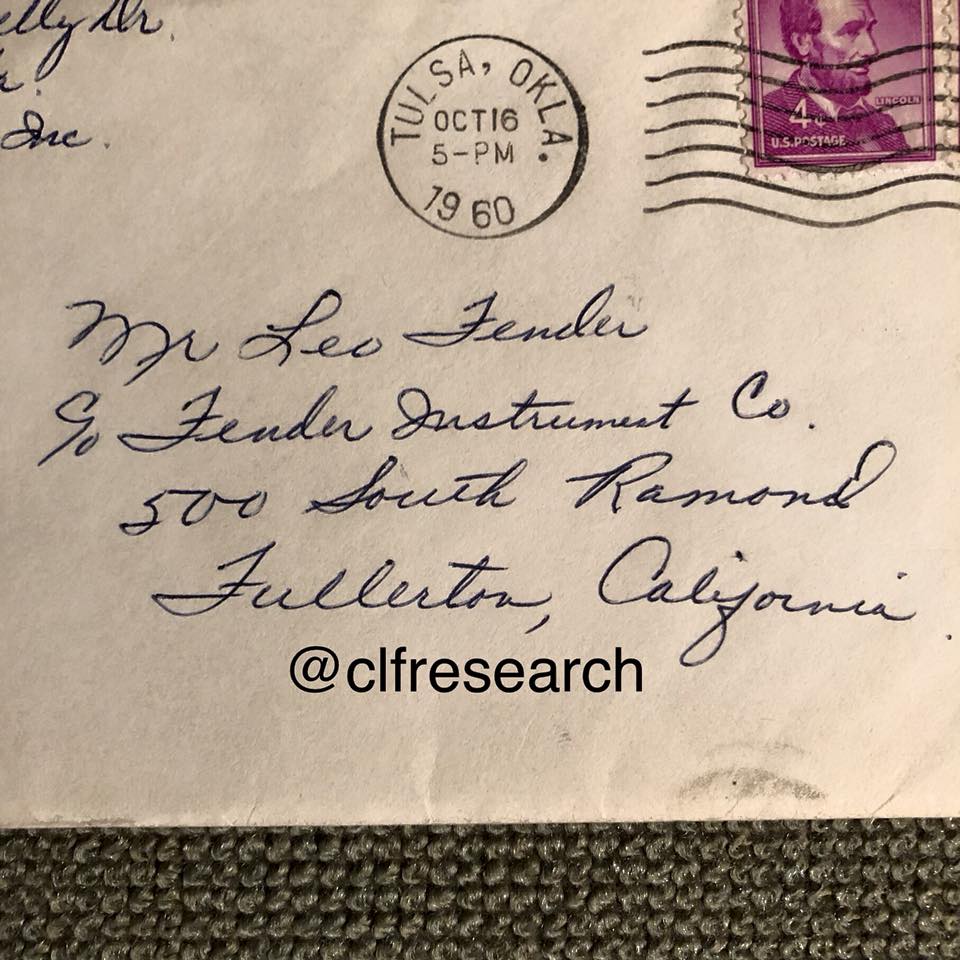 Dr.
Inc.
TULSA, OKLA.
OCT 16
5-PM
1960
LINCOLN
4¢
U.S. POSTAGE
Mr Leo Fender
c/o Fender Instrument Co.
500 South Ramond
Fullerton, California.
@clfresearch